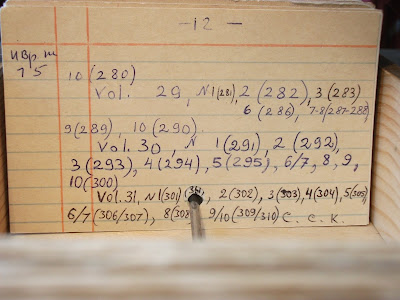 — 12 —
ИВР ж
15
10 (280)
Vol. 29, N1(281), 2 (282), 3 (283)
6 (286), 7-8(287-288)
9(289), 10(290).
Vol. 30, N 1(291), 2(292),
3(293), 4(294), 5(295), 6/7, 8, 9,
10(300)
Vol. 31, N1(301), 2(302), 3(303), 4(304), 5(305),
6/7(306/307), 8(308), 9/10(309/310) С. С. К.